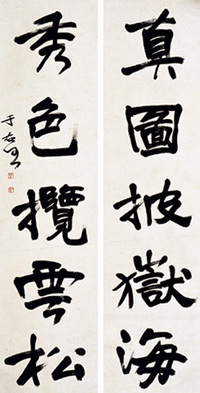 真圖披嶽海
秀色攬雲松
于右任